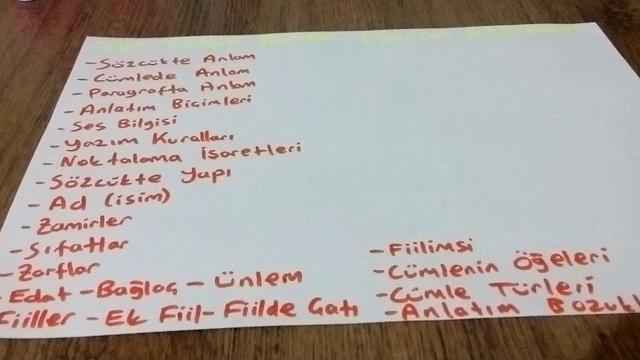 - Sözcükte Anlam
- Cümlede Anlam
- Paragrafta Anlam
- Anlatım Biçimleri
- Ses Bilgisi
- Yazım Kuralları
- Noktalama İşaretleri
- Sözcükte Yapı
- Ad (isim)
- Zamirler
- Sıfatlar
- Zarflar
- Edat - Bağlaç - Ünlem
Fiiller - Ek Fiil - Fiilde Çatı
- Fiilimsi
- Cümlenin Öğeleri
- Cümle Türleri
- Anlatım